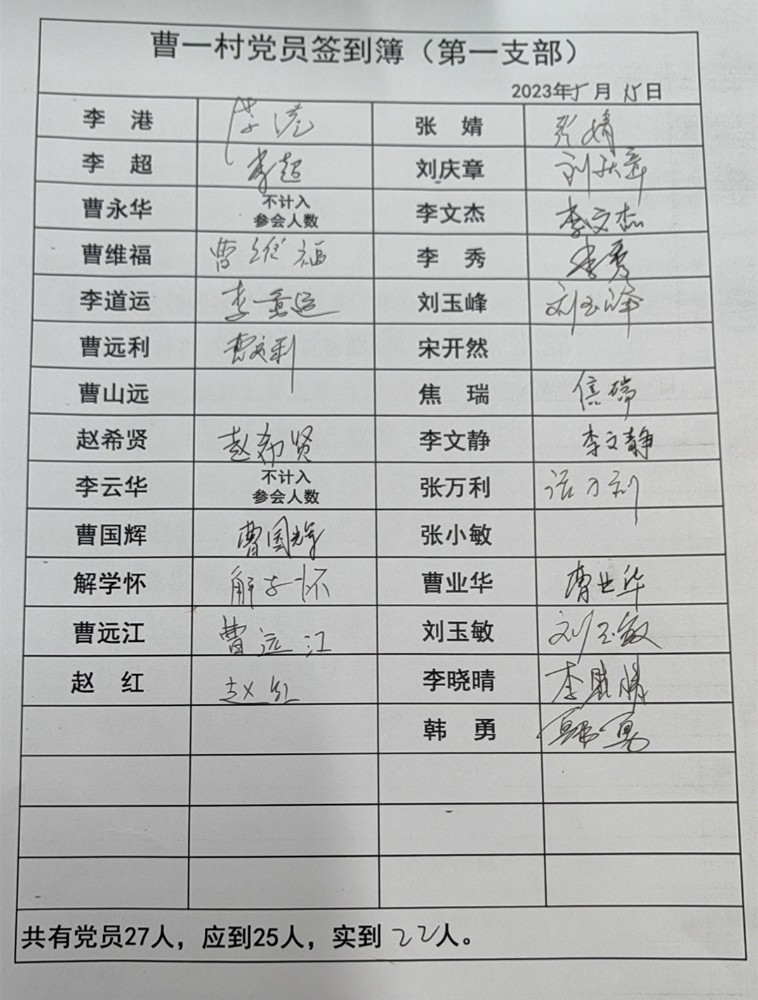 曹一村党员签到簿（第一支部）
2023年5月15日
李 港 李港 张 婧 张婧
李 超 李超 刘庆章 刘庆章
曹永华 不计入参会人数 李文杰 李文杰
曹维福 曹维福 李 秀 李秀
李道运 李道运 刘玉峰 刘玉峰
曹远利 曹远利 宋开然
曹山远 焦 瑞 焦瑞
赵希贤 赵希贤 李文静 李文静
李云华 不计入参会人数 张万利 张万利
曹国辉 曹国辉 张小敏
解学怀 解学怀 曹业华 曹业华
曹远江 曹远江 刘玉敏 刘玉敏
赵 红 赵红 李晓晴 李晓晴
韩 勇 韩勇
共有党员27人，应到25人，实到22人。